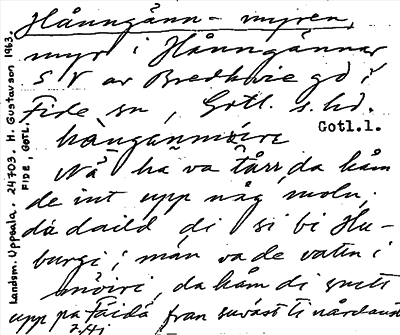 Hånngånn-myren,
myr i Hånngånnar
S V av Bredkvie gd i
Fide sn, Gotl. s. hd.
Gotl.l.
hånganmöire
Nå ha va tårr, da kåm
de int upp någ moln,
då daild di si bi Hu-
burgi; män va de vatn i
möiri, da kåm di
upp pa Faidå fran
Landsm. Uppsala, 24703, H. Gustavson 1963.
FIDE, GOTL.